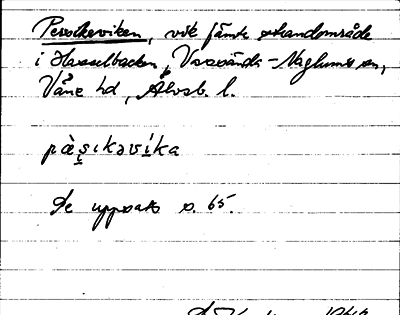 Perssikeviken, vik jämte strandområde
i Hasselbacken, Vassända-Naglums sn,
Våne hd, Älvsb. l.
pàs̩ikəvíka
Se uppsats s. 65.